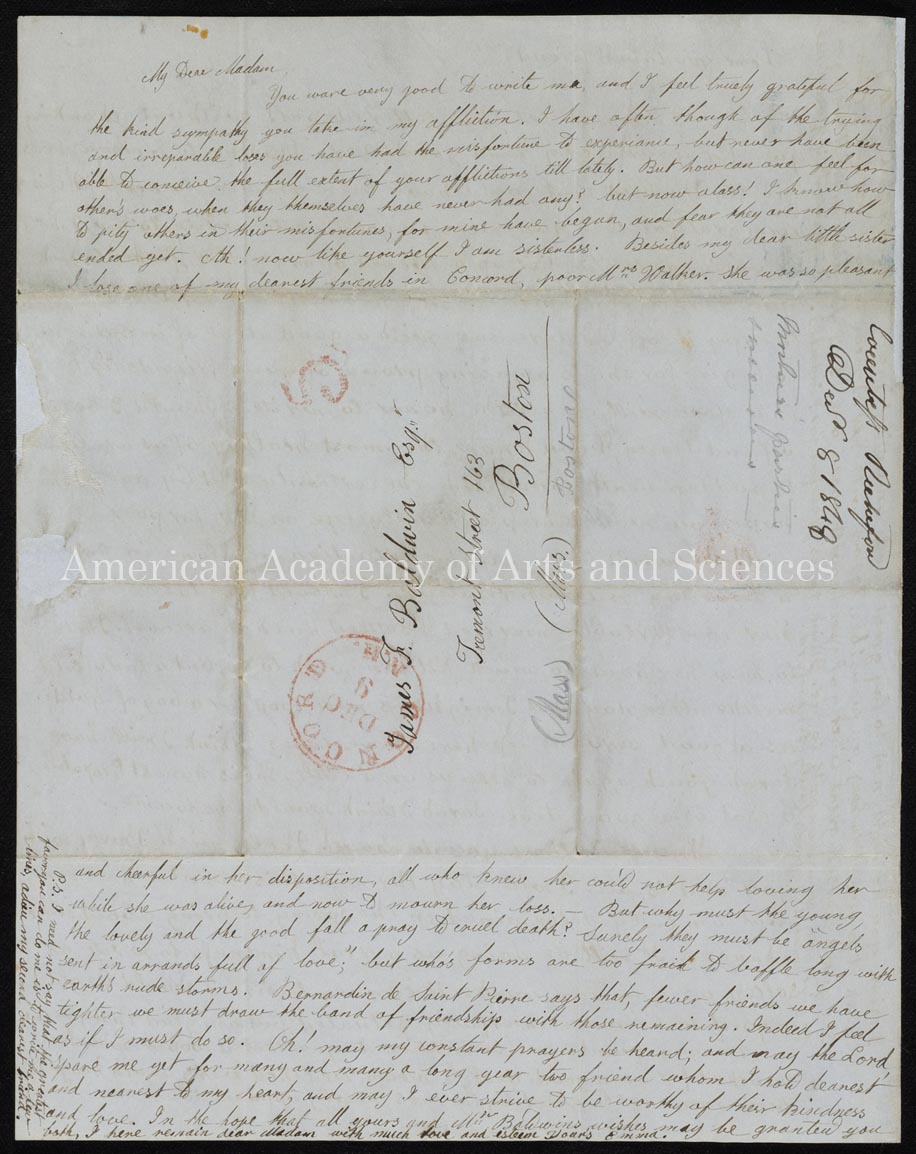 My Dear Madam,
You ware very good to write me, and I feel truely grateful for
the kind sympathy you take in my affliction. I have often though of the trying
and irreparable loses you have had the missfortune to experiance, but never have been
able to conceive, the full extent of your afflictions till lately. But how can one feel for
other's woes, when they themselves have never had any? but now alass! I know how
to pity others in their misfortunes, for mine have began, and fear they are not all
ended yet. Ah! now like yourself I am sisterless. Besides my dear little sister
I lose one of my dearest friends in Concord, poor Mrs Walker. she was so pleasant
James F. Baldwin Esqr
Tremont Street 163
Boston
Boston
(Mass.)
(Mass)
CONCORD N.H.
DEC
9
Countess
Decr 8 1848
American Academy of Arts and Sciences
and cheerful in her disposition, all who knew her could not help loving her
while she was alive, and now to mourn her loss. — But why must the young
the lovely and the good fall a pray to cruel death? Surely they must be "angels
sent in arrands full of love"; but who's forms are too frail to baffle long with
earth's rude storms. Bernardin de Saint Pierre says that, fewer friends we have
tighter we must draw the band of friendship with those remaining. Indeed I feel
as if I must do so. Oh! may my constant prayers be heard; and may the Lord
spare me yet for many and many a long year two friend whom I hold dearest
and nearest to my heart, and may I ever strive to be worthy of their kindness
and love. In the hope that all yours and Mr Baldwins wishes may be granted you
both, I here remain dear Madam with much love and esteem Yours Emma.
P.S. I need not say that the greatest
favor you can do me is to write me a few
lines, adieu my second dearest friend.